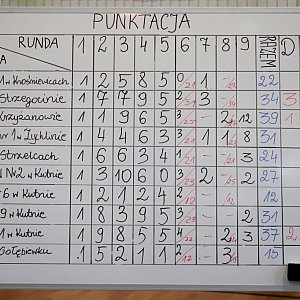 PUNKTACJA
RUNDA 1 2 3 4 5 6 7 8 9 RAZEM D
A
1 w Krośniewicach 1 2 5 8 5 0/21 1 - 22
Strzegocinie 1 7 7 9 5 2 3 - 34 3
Krzyżanowie 1 1 9 6 5 3 - 2 12 39 1
nr 1 w Żychlinie 1 4 4 6 3 3 1 1 8 31
Strzelcach 1 6 6 3 4 1 - - 3 24
Nr 2 w Kutnie 1 3 10 6 0 3/23 2 - 2 27
6 w Kutnie 1 2 1 2 4 2/12 - - - 12
9 w Kutnie 1 8 3 9 5 3/29 - 2 - 31
1 w Kutnie 1 9 8 5 5 4/32 - 2 3 37 2
Gołębiewku 1 5 2 1 1 2/12 - 3 - 15